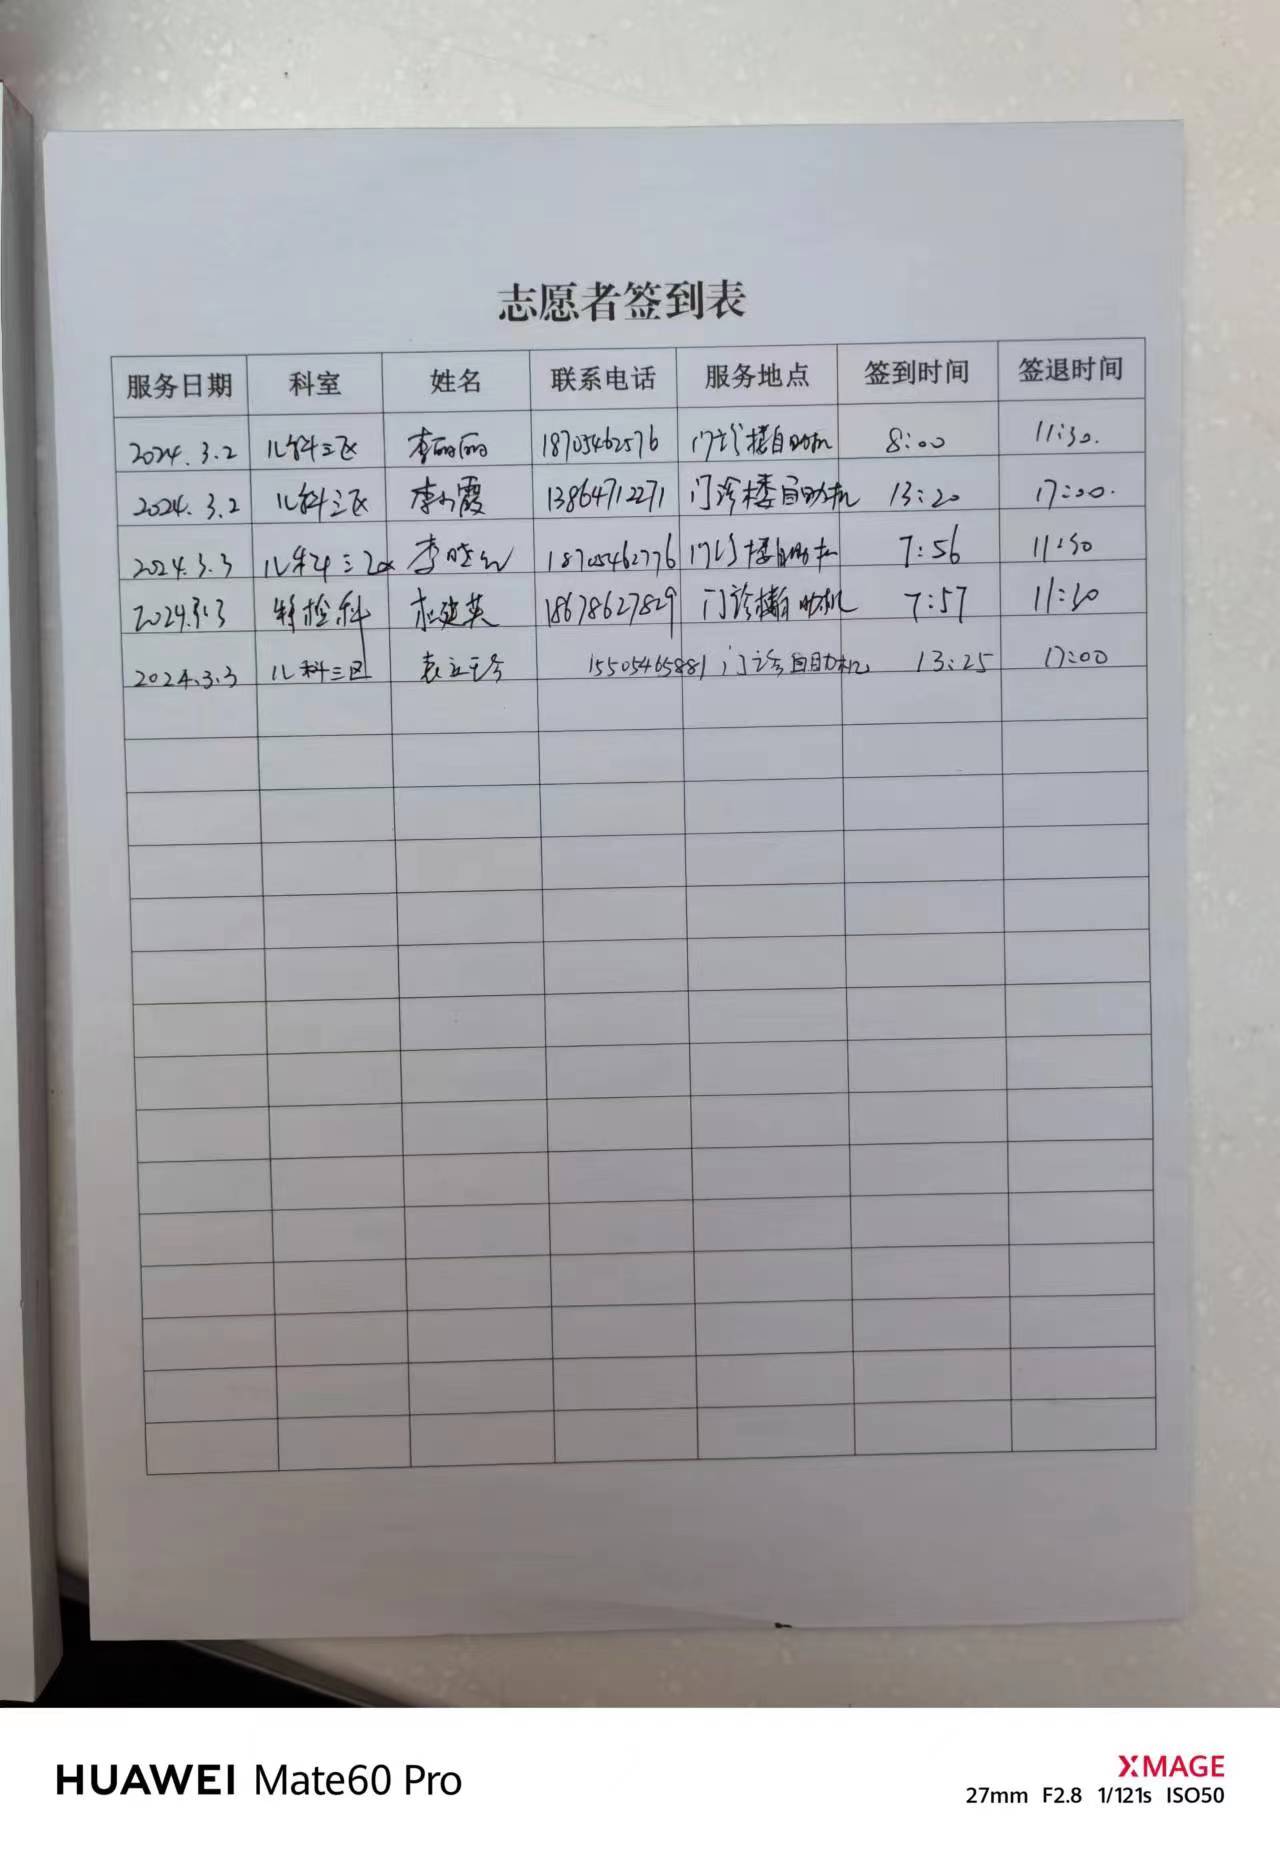 志愿者签到表
服务日期 科室 姓名 联系电话 服务地点 签到时间 签退时间
2024.3.2 儿科三区 李丽丽 18705462576 门诊楼自助机 8:00 11:30.
2024.3.2 儿科三区 李小霞 13864712271 门诊楼自助机 13:20 17:00.
2024.3.3 儿科三区 李晓红 18705462776 门诊楼自助机 7:56 11:30
2024.3.3 特检科 杜建英 18678627829 门诊楼自助机 7:57 11:30
2024.3.3 儿科三区 袁立珍 15505465881 门诊自助机 13:25 17:00
HUAWEI Mate60 Pro
XMAGE
27mm F2.8 1/121s ISO50